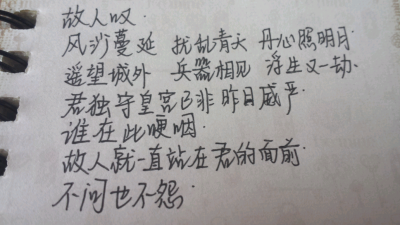 故人叹.
风沙蔓延 扰乱青天 丹心照明月
遥望城外 兵器相见 浮生又一劫.
君独守皇宫已非昨日威严
谁在此哽咽.
故人就一直站在君的面前.
不问也不怨.